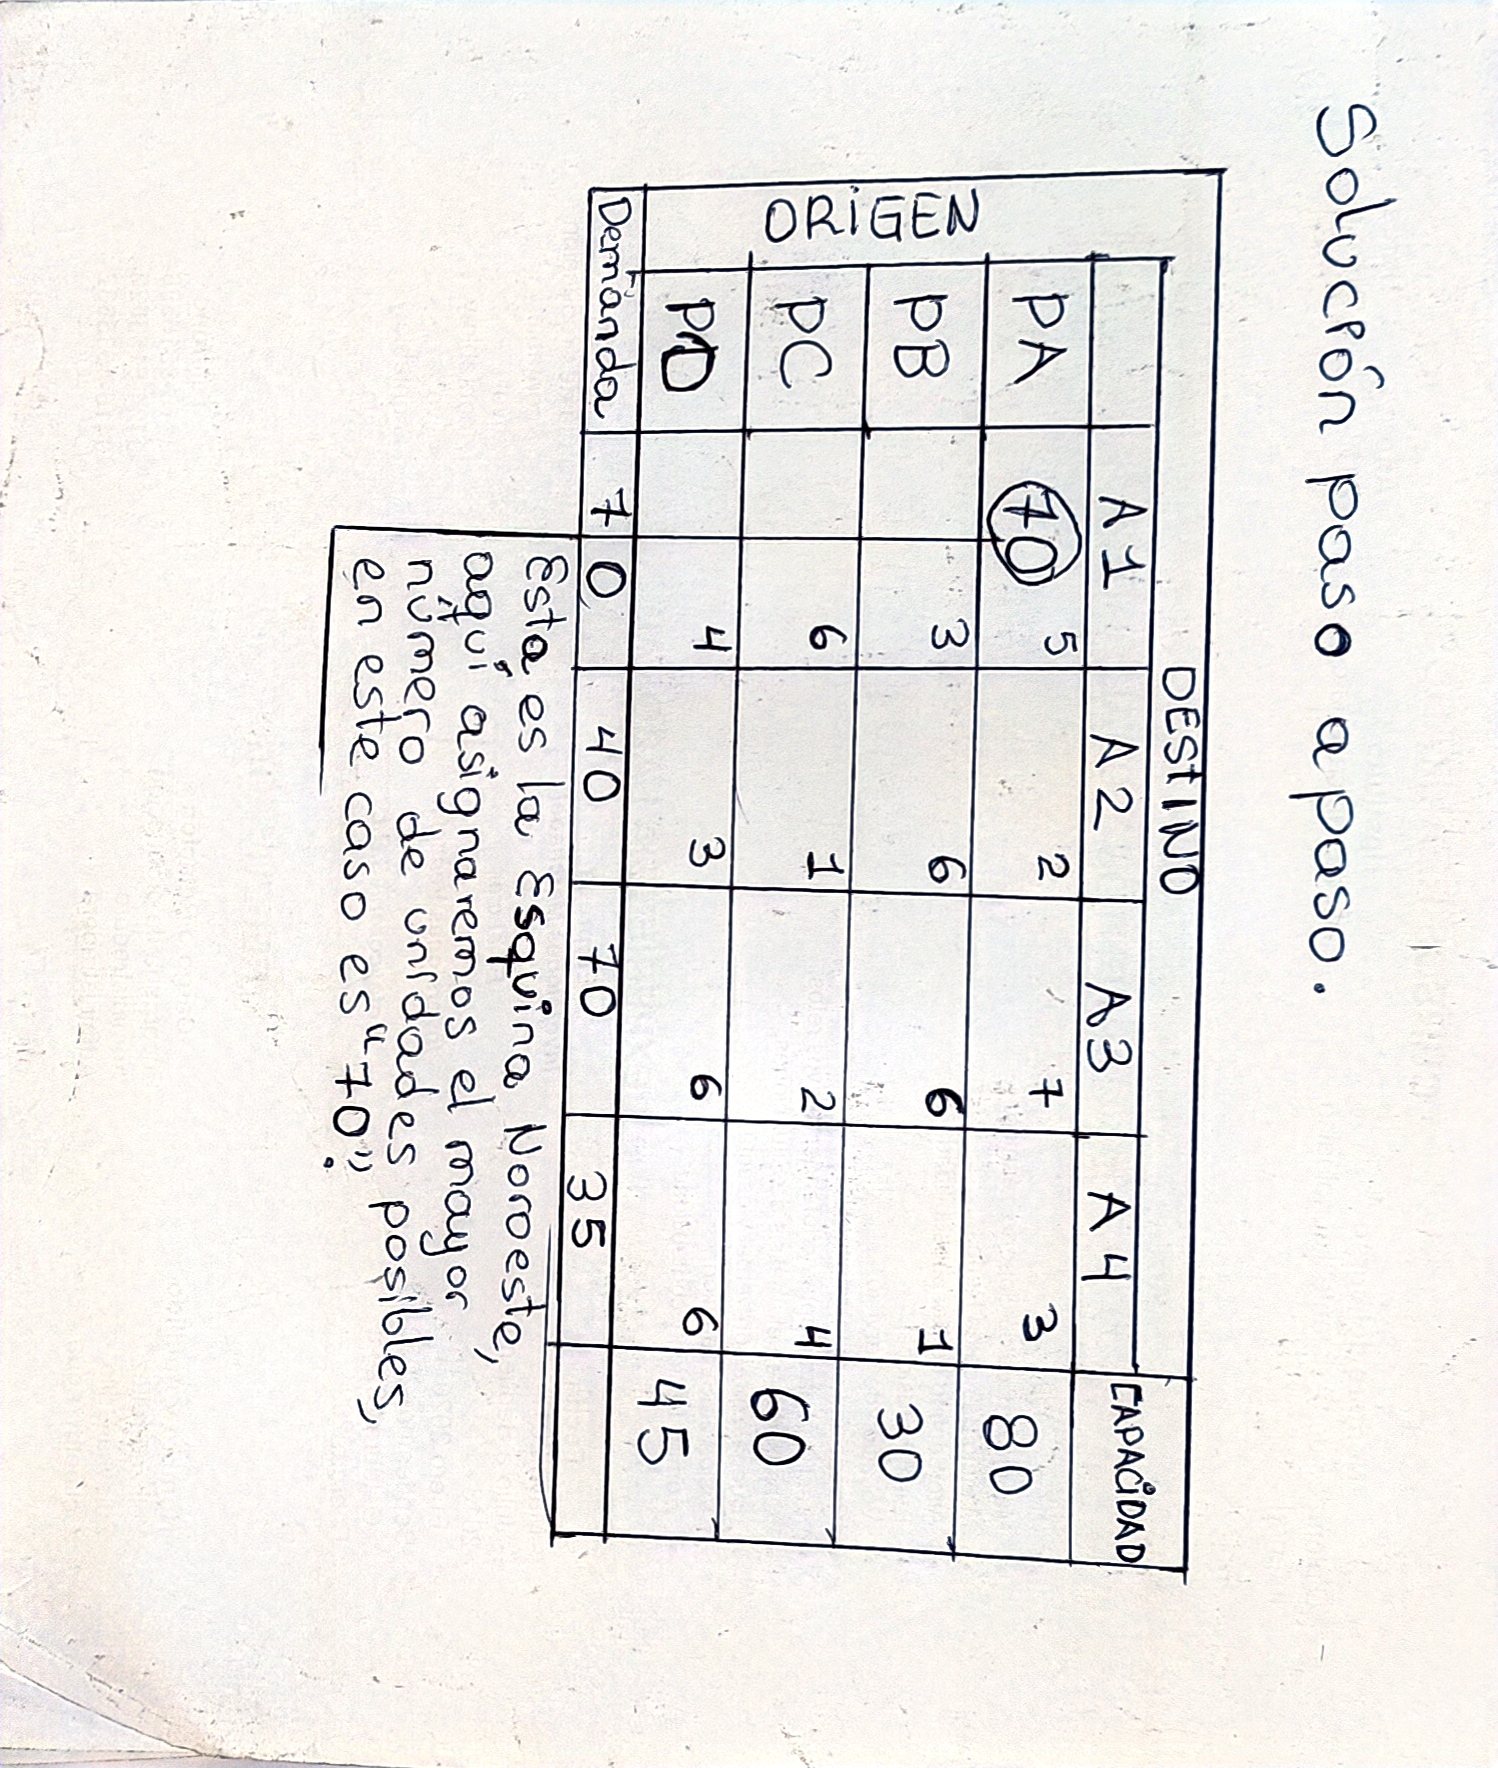 Solución paso a paso.
DESTINO
CAPACIDAD
A1 A2 A3 A4
ORIGEN
PA 70 5 2 7 3 80
PB 3 6 6 1 30
PC 6 1 2 4 60
PD 4 3 6 6 45
Demanda 70 40 70 35
Esta es la Esquina Noroeste,
aquí asignaremos el mayor
número de unidades posibles,
en este caso es "70".